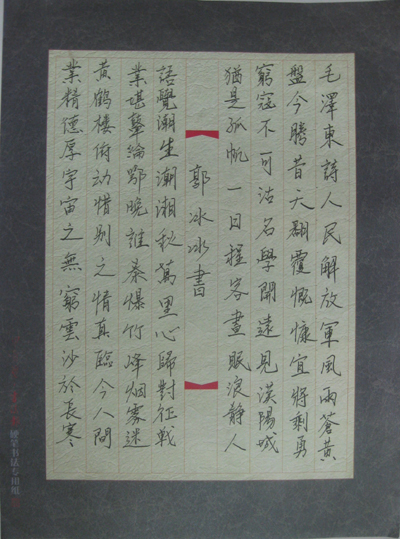 毛澤東詩人民解放軍風雨蒼黃
盤今勝昔天翻覆慨慷宜將剩勇
窮寇不可沽名學開遠見漢陽城
猶是孤帆一日程客晝眠浪靜人
郭冰冰書
語覺潮生潮湘秋萬里心歸對征戰
業堪擊綸鄂晚誰泰爆竹峰烟霧迷
黃鶴樓俯动惜别之情真臨今人間
業精德厚宇宙之無窮雲沙於長寒
硬笔书法专用纸